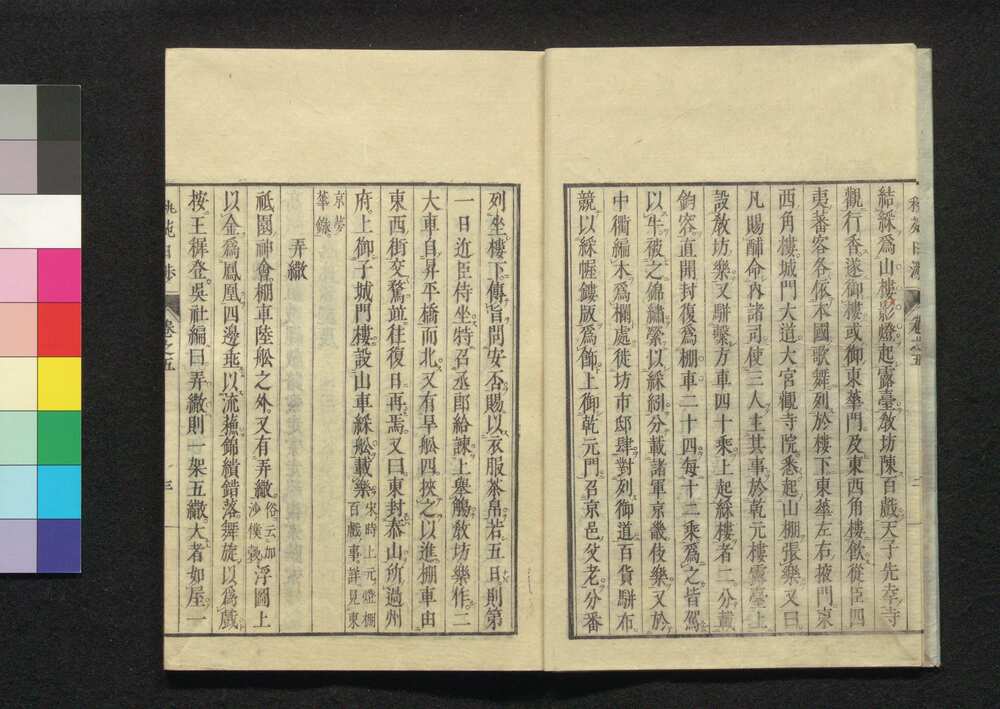 結綵爲山樓影燈起露臺敎坊陳百戲天子先幸寺
觀行香遂御樓或御東華門及東西角樓飮從臣四
夷蕃客各依本國歌舞列於樓下東華左右掖門東
西角樓城門大道大宮觀寺院悉起山棚張樂又曰
凡賜酺命內諸司使三人主其事於乾元樓露臺上
設敎坊樂又騈繫方車四十乘上起綵樓者二分載
鈞容直開封復爲棚車二十四每十二乘爲之皆駕
以牛被之錦繡縈以綵紖分載諸軍京畿伎樂又於
中衢編木爲欄處徙坊市邸肆對列御道百貨騈布
競以綵幄鏤版爲飾上御乾元門召京邑父老分番
列坐樓下傳旨問安否賜以衣服茶帛若五日則第
一日近臣侍坐特召丞郎給諫上舉觴敎坊樂作二
大車自昇平橋而北又有旱舩四挾之以進棚車由
東西街交騖並往復日再焉又曰東封泰山所過州
府上御子城門樓設山車綵舩載樂宋時上元燈棚
百戲事詳見東
京夢
華錄
弄繖
祇園神會棚車陸舩之外又有弄繖俗云加
沙僕
浮圖上
以金爲鳳凰四邊垂以流蘇錦繢錯落舞旋以爲戲
按王穉登吳社編曰弄繖則一架五繖大者如屋一
卷之五
三
二